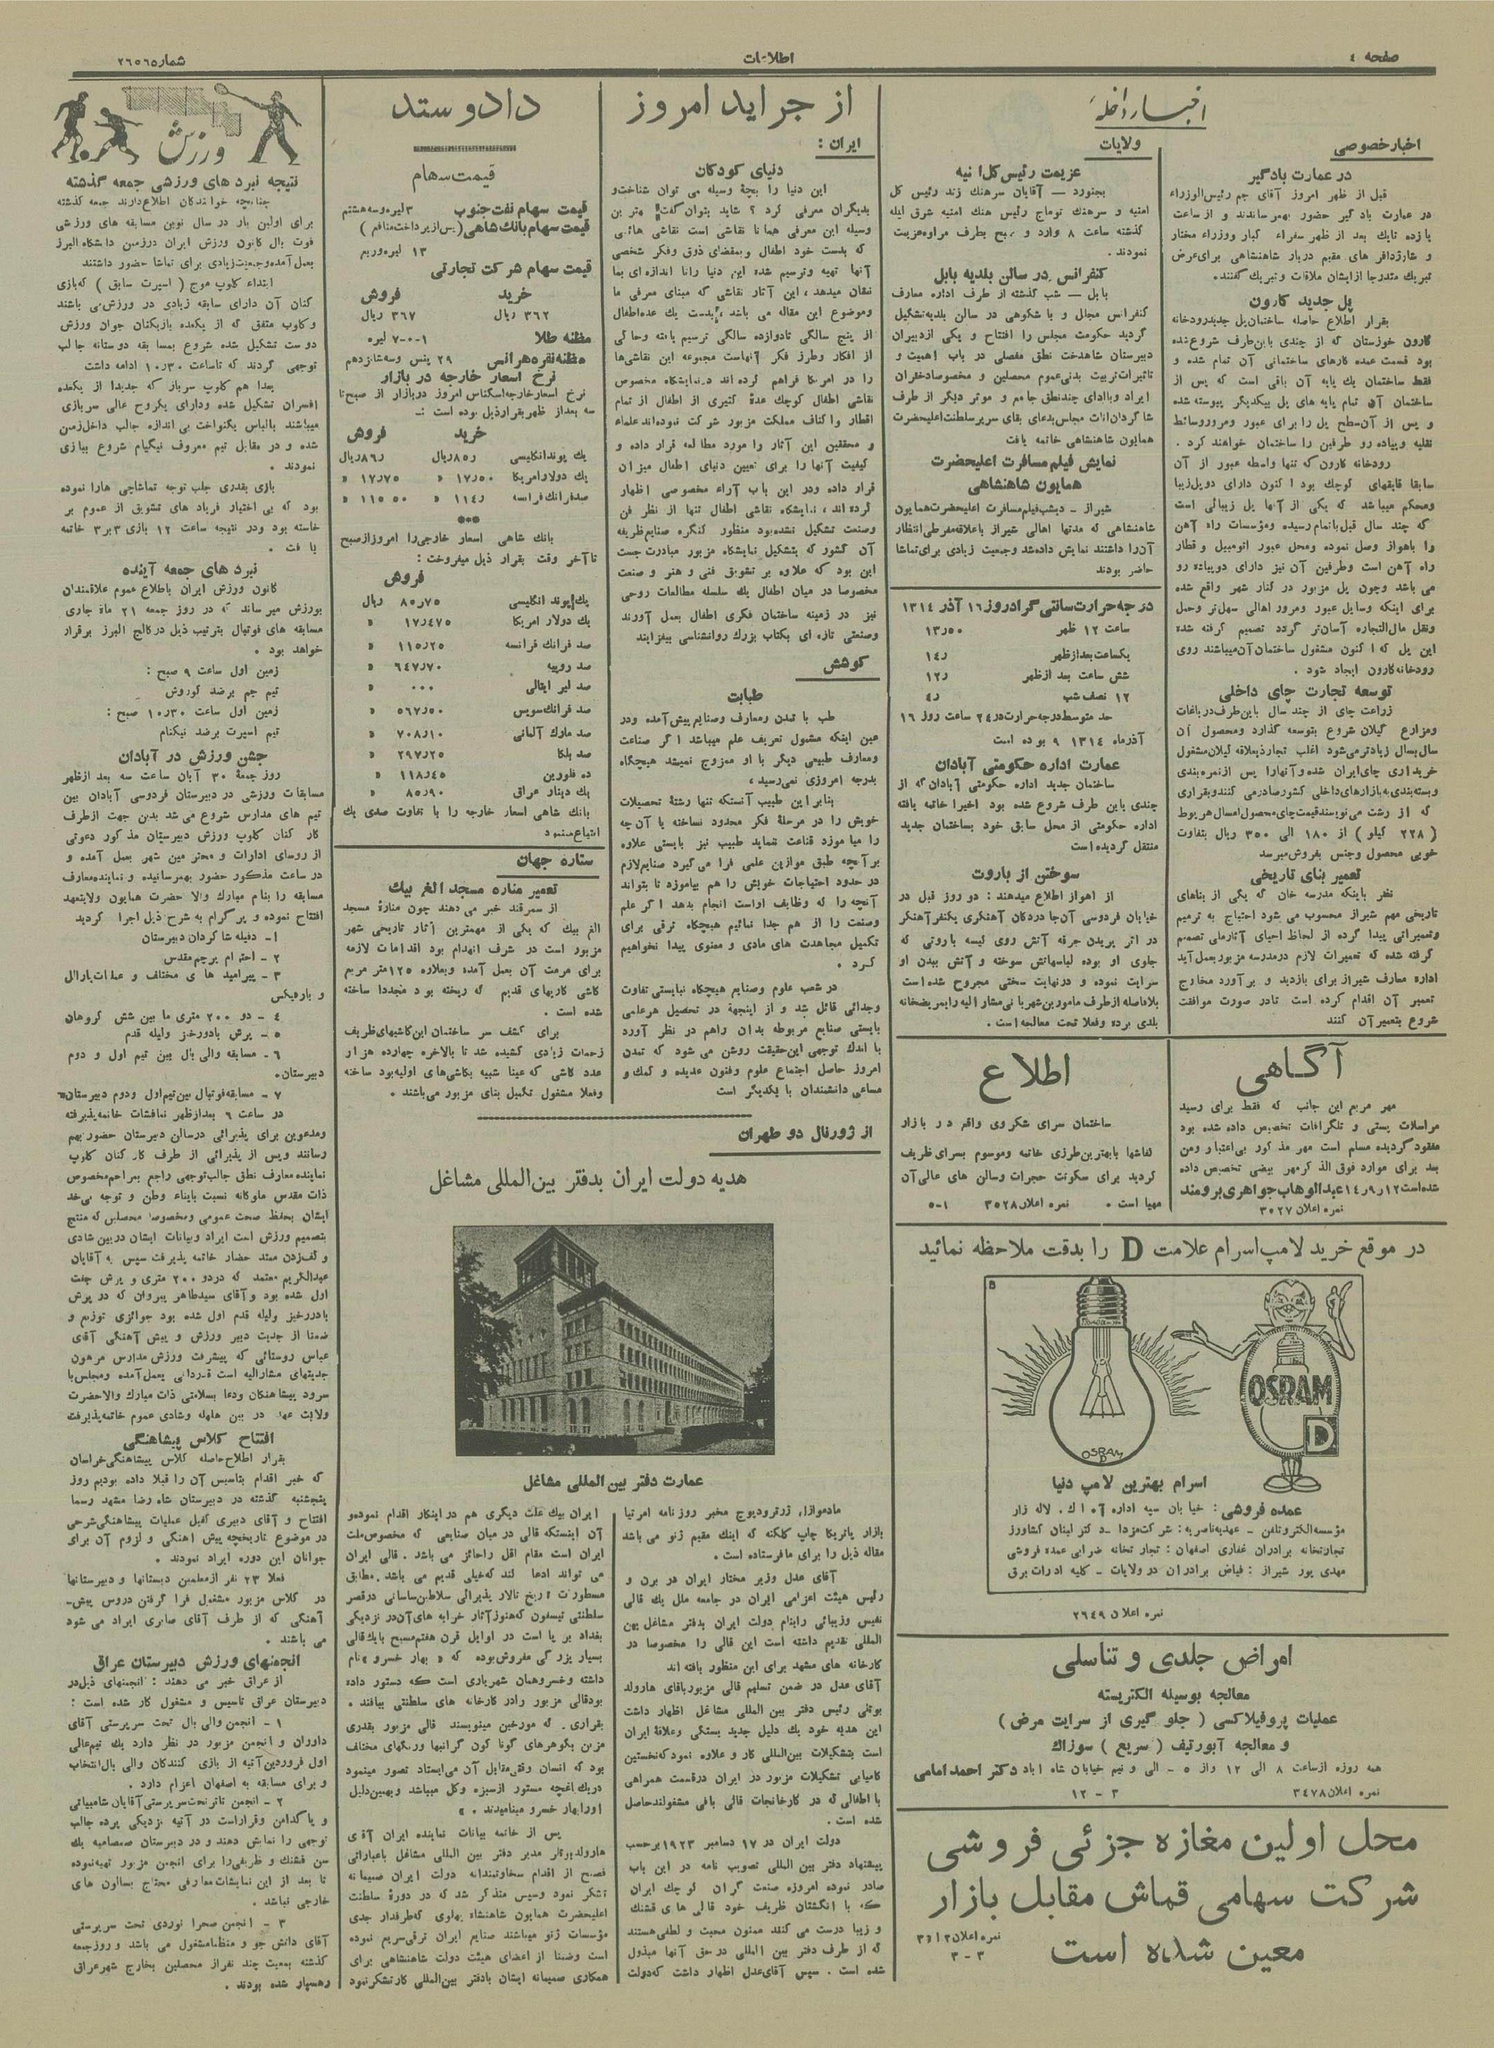 صفحه ٤
اطلاعات
شماره ٢٦٥٦٥
اخبار داخله
اخبار خصوصی
در عمارت بادگیر
قبل از ظهر امروز آقای جم رئیس‌الوزراء
در عمارت بادگیر حضور بهمرساندند و از ساعت
یازده تا یک بعد از ظهر سفراء کبار ووزراء مختار
و شارژدافر های مقیم دربار شاهنشاهی برای عرض
تبریک متدرجا از ایشان ملاقات و تبریک گفتند.
پل جدید کارون
بقرار اطلاع حاصله ساختمان پل جدید رودخانه
کارون خوزستان که از چندی باین طرف شروع شده
بود قسمت عمده کارهای ساختمانی آن تمام شده و
فقط ساختمان یک پایه آن باقی است که پس از
ساختمان آن تمام پایه های پل بیکدیگر پیوسته شده
و پس از آن سطح پل را برای عبور و مرور وسائط
نقلیه و پیاده رو طرفین را ساختمان خواهند کرد.
رودخانه کارون که تنها واسطه عبور از آن
سابقا قایقهای کوچک بود اکنون دارای دو پل زیبا
و محکم میباشد که یکی از آنها پل زیبائی است
که چند سال قبل باتمام رسیده و مؤسسات راه آهن
را باهواز وصل نموده و محل عبور اتومبیل و قطار
راه آهن است و طرفین آن نیز دارای دو پیاده رو
می باشد و چون پل مزبور در کنار شهر واقع شده
برای اینکه وسایل عبور و مرور اهالی سهل‌تر و حمل
و نقل مال‌التجاره آسان‌تر گردد تصمیم گرفته شده
این پل که اکنون مشغول ساختمان آن میباشند روی
رودخانه کارون ایجاد شود.
توسعه تجارت چای داخلی
زراعت چای از چند سال باین طرف در باغات
و مزارع گیلان شروع بتوسعه گذارد و محصول آن
سال بسال زیادتر می‌شود اغلب تجار بعلاقه گیلان مشغول
خریداری چای ایران شده و آنها را پس از نمره بندی
و بسته بندی به بازارهای داخلی کشور صادر می کنند و بقراری
که از رشت می‌نویسند قیمت چای محصول امسال هر پوط
(٢٢٨ کیلو) از ١٨٠ الی ٣٥٠ ریال بتفاوت
خوبی محصول و جنس بفروش میرسد
تعمیر بنای تاریخی
نظر باینکه مدرسه خان که یکی از بناهای
تاریخی مهم شیراز محسوب می شود احتیاج به ترمیم
و تعمیراتی پیدا کرده از لحاظ احیای آثار ملی تصمیم
گرفته شده که تعمیرات لازم در مدرسه مزبور بعمل آید
اداره معارف شیراز برای بازدید و برآورد مخارج
تعمیر آن اقدام کرده است تا در صورت موافقت
شروع بتعمیر آن کنند
ولایات
عزیمت رئیس کل امنیه
بجنورد — آقایان سرهنگ زند رئیس کل
امنیه و سرهنگ توماج رئیس هنگ امنیه شرق لیله
گذشته ساعت ٨ وارد و صبح بطرف مراوه عزیمت
نمودند.
کنفرانس در سالن بلدیه بابل
بابل — شب گذشته از طرف اداره معارف
کنفرانس مجلل و با شکوهی در سالن بلدیه تشکیل
گردید حکومت مجلس را افتتاح و یکی از دبیران
دبیرستان شاهدخت نطق مفصلی در باب اهمیت و
تاثیرات تربیت بدنی عموم محصلین و مخصوصا دختران
ایراد و با ادای چند نطق جامع و موثر دیگر از طرف
شاگردان اناث مجلس بدعای بقای سریر سلطنت اعلیحضرت
همایون شاهنشاهی خاتمه یافت
نمایش فیلم مسافرت اعلیحضرت
همایون شاهنشاهی
شیراز — دیشب فیلم مسافرت اعلیحضرت همایون
شاهنشاهی که مدتها اهالی شیراز با علاقه مفرطی انتظار
آن را داشتند نمایش داده شد و جمعیت زیادی برای تماشا
حاضر بودند
درجه حرارت سانتی گراد روز ١٦ آذر ١٣١٤
ساعت ١٢ ظهر ١٣ر٥٠
یکساعت بعد از ظهر ١٤ر
شش ساعت بعد از ظهر ١٢ر
١٢ نصف شب ٤ر
حد متوسط درجه حرارت در ٢٤ ساعت روز ١٦
آذر ماه ١٣١٤ ٩ بوده است
عمارت اداره حکومتی آبادان
ساختمان جدید اداره حکومتی آبادان که از
چندی باین طرف شروع شده بود اخیرا خاتمه یافته
اداره حکومتی از محل سابق خود بساختمان جدید
منتقل گردیده است
سوختن از باروت
از اهواز اطلاع میدهند: دو روز قبل در
خیابان فردوسی آن‌جا در دکان آهنگری یکنفر آهنگر
در اثر پریدن جرقه آتش روی کیسه باروتی که
جلوی او بوده لباسهایش سوخته و آتش ببدن او
سرایت نموده و در نهایت سختی مجروح شده است
بلافاصله از طرف مامورین شهربانی مشارالیه را بمریضخانه
بلدی برده و فعلا تحت معالجه است.
آگاهی
مهر مربع این جانب که فقط برای رسید
مراسلات پستی و تلگرافات تخصیص داده شده بود
مفقود گردیده مسلم است مهر مذکور بی اعتبار و من
بعد برای موارد فوق الذکر مهر بیضی تخصیص داده
شده است ١٢ر٩ر١٤ عبدالوهاب جواهری برومند
نمره اعلان ٣٥٢٧
اطلاع
ساختمان سرای شکروی واقع در بازار
کفاشها بابهترین طرزی خاتمه و موسوم بسرای ظریف
گردید برای سکونت حجرات و سالن های عالی آن
مهیا است. نمره اعلان ٣٥٢٨ ١-٥
در موقع خرید لامپ اسرام علامت D را بدقت ملاحظه نمائید
OSRAM
D
OSRAM
D
اسرام بهترین لامپ دنیا
عمده فروشی: خیابان سپه اداره آ.ا.ک. لاله زار
مؤسسه الکتروتلفن - عهدیه ناصریه: شرکت مزدا - دکتر لیتان کشاورز
تجارتخانه برادران غفاری اصفهان: تجارتخانه ضرابی عمده فروشی
مهدی پور شیراز: فیاض برادران در ولایات - کلیه ادارات برق
نمره اعلان ٢٦٤٩
امراض جلدی و تناسلی
معالجه بوسیله الکتریسته
عملیات پروفیلاکسی (جلو گیری از سرایت مرض)
و معالجه آبورتیف (سریع) سوزاک
همه روزه از ساعت ٨ الی ١٢ و از ٥ - الی و نیم خیابان شاه اباد دکتر احمد امامی
نمره اعلان ٣٤٧٨ ٣ - ١٢
محل اولین مغازه جزئی فروشی
شرکت سهامی قماش مقابل بازار
معین شده است
٣-٣
از جراید امروز
ایران:
دنیای کودکان
این دنیا را بچه وسیله می توان شناخت و
بدیگران معرفی کرد؟ شاید بتوان گفت بهترین
وسیله این معرفی همانا نقاشی است نقاشی هائی
که بدست خود اطفال و بمقتضای ذوق و فکر شخصی
آنها تهیه و ترسیم شده این دنیا را تا اندازه‌ای بما
نشان میدهد، این آثار نقاشی که مبنای معرفی ما
و موضوع این مقاله می باشد، بدست یک عده اطفال
از پنج سالگی تا دوازده سالگی ترسیم یافته و حاکی
از افکار و طرز فکر آنهاست مجموعه این نقاشی‌ها
را در امریکا فراهم کرده اند در نمایشگاه مخصوص
نقاشی اطفال کوچک عدهٔ کثیری از اطفال از تمام
اقطار و اکناف مملکت مزبور شرکت نموده‌اند علماء
و محققین این آثار را مورد مطالعه قرار داده و
کیفیت آنها را برای تعیین دنیای اطفال میزان
قرار داده و در این باب آراء مخصوصی اظهار
کرده اند، نمایشگاه نقاشی اطفال تنها از نظر فن
و صنعت تشکیل نشده بود منظور کنگره صنایع ظریفه
آن کشور که بتشکیل نمایشگاه مزبور مبادرت جست
این بود که علاوه بر تشویق فنی و هنر و صنعت
مخصوصا در میان اطفال یک سلسله مطالعات روحی
نیز در زمینه ساختمان فکری اطفال بعمل آورند
و صنعتی تازه ای بکتاب بزرگ روانشناسی بیفزایند
کوشش
طبابت
طب با تمدن و معارف و صنایع پیش آمده و در
عین اینکه مشمول تعریف علم میباشد اگر صناعت
و معارف طبیعی دیگر با او ممزوج نمیشد هیچگاه
بدرجه امروزی نمی رسید،
بنابر این طبیب آنستکه تنها رشتهٔ تحصیلات
خویش را در مرحلهٔ فکر محدود نساخته یا آن چه
را می‌آموزد قناعت ننماید طبیب نیز بایستی علاوه
بر آنچه طبق موازین علمی فرا می گیرد صنایع لازم
در حدود احتیاجات خویش را هم بیاموزد تا بتواند
آنچه را که وظایف اوست انجام بدهد اگر علم
و صنعت را از هم جدا نمائیم هیچگاه ترقی برای
تکمیل مجاهدت های مادی و معنوی پیدا نخواهیم
کرد.
در شعب علوم و صنایع هیچگاه نبایستی تفاوت
وجدائی قائل شد و از اینجهة در تحصیل هر علمی
بایستی صنایع مربوطه بدان را هم در نظر آورد
با اندک توجهی این حقیقت روشن می شود که تمدن
امروز حاصل اجتماع علوم و فنون عدیده و کمک و
مساعی دانشمندان با یکدیگر است
دادوستد
قیمت سهام
قیمت سهام نفت جنوب ٣ لیره و سه هشتم
قیمت سهام بانک شاهی (پس از پرداخت منافع)
١٣ لیره و ربع
قیمت سهام شرکت تجارتی
خرید فروش
٣٦٢ ریال ٣٦٧ ریال
مظنه طلا ١-٠-٧ لیره
مظنه نقره هر انس ٢٩ پنس و سه شانزدهم
نرخ اسعار خارجه در بازار
نرخ اسعار خارجه اسکناس امروز در بازار از صبح تا
سه بعد از ظهر بقرار ذیل بوده است:-
خرید فروش
یک پوند انگلیسی ٨٥ر ریال ٨٦ر ریال
یک دولار امریکا ١٧ر٥٠ » ١٧ر٧٥ »
صد فرانک فرانسه ١١٤ر » ١١٥ر٥٠ »
***
بانک شاهی اسعار خارجی را امروز از صبح
تا آخر وقت بقرار ذیل میفروخت:
فروش
یک پوند انگلیسی ٨٠ر٧٥ ریال
یک دولار امریکا ١٧ر٤٧٥ »
صد فرانک فرانسه ١١٥ر٢٥ »
صد روپیه ٦٤٧ر٧٠ »
صد لیر ایتالی ٠٠٠ »
صد فرانک سویس ٥٦٧ر٥٠ »
صد مارک آلمانی ٧٠٨ر١٠ »
صد بلگا ٢٩٧ر٢٥ »
ده فلورین ١١٨ر٤٥ »
یک دینار عراق ٨٥ر٩٠ »
بانک شاهی اسعار خارجه را با تفاوت صدی یک
ابتیاع مینمود
ستاره جهان
تعمیر مناره مسجد الغ بیک
از سمرقند خبر می دهند چون منارهٔ مسجد
الغ بیک که یکی از مهمترین آثار تاریخی شهر
مزبور است در شرف انهدام بود اقدامات لازمه
برای مرمت آن بعمل آمده و بعلاوه ١٢٥ متر مربع
کاشی کاریهای قدیم که ریخته بود مجددا ساخته
شده است.
برای کشف سر ساختمان این کاشیهای ظریف
زحمات زیادی کشیده شد تا بالاخره چهارده هزار
عدد کاشی که عینا شبیه بکاشی‌های اولیه بود ساخته
و فعلا مشغول تکمیل بنای مزبور می‌باشند.
از ژورنال دو طهران
هدیه دولت ایران بدفتر بین‌المللی مشاغل
عمارت دفتر بین المللی مشاغل
مادموازل ژرترودیوج مخبر روزنامه امرتیا
بازار پاتریکا چاپ کلکته که اینک مقیم ژنو می باشد
مقاله ذیل را برای ما فرستاده است.
آقای عدل وزیر مختار ایران در برن و
رئیس هیئت اعزامی ایران در جامعه ملل یک قالی
نفیس و زیبائی را بنام دولت ایران بدفتر مشاغل بین
المللی تقدیم داشته است این قالی را مخصوصا در
کارخانه های مشهد برای این منظور بافته اند
آقای عدل در ضمن تسلیم قالی مزبور باقای هارولد
بوتلی رئیس دفتر بین المللی مشاغل اظهار داشت
این هدیه خود یک دلیل جدید بستگی و علاقهٔ ایران
است بتشکیلات بین‌المللی کار و علاوه نمود که نخستین
کامیابی تشکیلات مزبور در ایران در قسمت همراهی
با اطفالی که در کارخانجات قالی بافی مشغولند حاصل
شده است.
دولت ایران در ١٧ دسامبر ١٩٢٣ بر حسب
پیشنهاد دفتر بین المللی تصویب نامه در این باب
صادر نموده امروزه صنعت گران کوچک ایران
که با انگشتان ظریف خود قالی های قشنگ
و زیبا درست می کنند ممنون محبت و لطفی هستند
که از طرف دفتر بین المللی در حق آنها مبذول
شده است. سپس آقای عدل اظهار داشت که دولت
ایران بیک علت دیگری هم در اینکار اقدام نموده و
آن اینستکه قالی در میان صنایعی که مخصوص ملت
ایران است مقام اول را حائز می باشد. قالی ایران
می تواند ادعا کند که خیلی قدیم می باشد. مطابق
مسطورات تاریخ تالار پذیرائی سلاطین ساسانی در قصر
سلطنتی تیسفون که هنوز آثار خرابه های آن در نزدیکی
بغداد بر پا است در اوایل قرن هفتم مسیح با یک قالی
بسیار بزرگی مفروش بوده که «بهار خسرو» نام
داشته و خسرو همان شهریاری است که دستور داده
بود قالی مزبور را در کارخانه های سلطنتی ببافند.
بقراری که مورخین مینویسند قالی مزبور بقدری
مزین بگوهرهای گونا گون گرانبها و رنگهای مختلف
بود که انسان وقتی مقابل آن می‌ایستاد تصور مینمود
در یک باغچه مستور از سبزه و گل میباشد و بهمین دلیل
او را بهار خسرو مینامیدند.»
پس از خاتمه بیانات نماینده ایران آقای
هارولد بوتلر مدیر دفتر بین المللی مشاغل با عباراتی
فصیح از اقدام سخاوتمندانه دولت ایران صمیمانه
تشکر نمود و سپس متذکر شد که در دورهٔ سلطنت
اعلیحضرت همایون شاهنشاه پهلوی که طرفدار جدی
مؤسسات ژنو میباشند صنایع ایران ترقی سریع نموده
است و ضمنا از اعضای هیئت دولت شاهنشاهی برای
همکاری صمیمانه ایشان با دفتر بین‌المللی کار تشکر نمود
ورزش
نتیجه نبرد های ورزشی جمعه گذشته
چنانچه خوانندگان اطلاع دارند جمعه گذشته
برای اولین بار در سال نوین مسابقه های ورزشی
فوت بال کانون ورزش ایران در زمین دانشگاه البرز
بعمل آمده و جمعیت زیادی برای تماشا حضور داشتند
ابتداء کلوپ موج (اسیرت سابق) که بازی
کنان آن دارای سابقه زیادی در ورزش می باشند
و کلوپ متفق که از یکعده بازیکنان جوان ورزش
دوست تشکیل شده شروع بمسابقه دوستانه جالب
توجهی گردند که تا ساعت ١٠ر٣٠ ادامه داشت
بعدا هم کلوپ سرباز که جدیدا از یکعده
افسران تشکیل شده و دارای یکروح عالی سربازی
میباشند با لباس یکنواخت بی اندازه جالب داخل زمین
شده و در مقابل تیم معروف نیکنام شروع ببازی
نمودند.
بازی بقدری جلب توجه تماشاچی هارا نموده
بود که بی اختیار فریاد های تشویق از عموم بر
خاسته بود و در نتیجه ساعت ١٢ بازی ٣ بر ٣ خاتمه
یافت.
نبرد های جمعه آینده
کانون ورزش ایران باطلاع عموم علاقمندان
بورزش میرساند که در روز جمعه ٢١ ماه جاری
مسابقه های فوتبال بترتیب ذیل در کالج البرز برقرار
خواهد بود.
زمین اول ساعت ٩ صبح:
تیم جم بر ضد کوروش
زمین اول ساعت ١٠ر٣٠ صبح:
تیم اسیرت بر ضد نیکنام
جشن ورزش در آبادان
روز جمعهٔ ٣٠ آبان ساعت سه بعد از ظهر
مسابقات ورزشی در دبیرستان فردوسی آبادان بین
تیم های مدارس شروع می شد بدین جهت از طرف
کارکنان کلوپ ورزش دبیرستان مذکور دعوتی
از روسای ادارات و محترمین شهر بعمل آمده و
در ساعت مذکور حضور بهمرسانیده و نماینده معارف
مسابقه را بنام مبارک والا حضرت همایون ولایتعهد
افتتاح نموده و پرگرام به شرح ذیل اجرا گردید
١- دفیله شاگردان دبیرستان
٢ - احترام پرچم مقدس
٣ - پیرامید های مختلف و عملیات پارالل
و بارفیکس
٤ - دو ٢٠٠ متری ما بین شش گروهان
٥ - پرش بادورخیز و لیله قدم
٦ - مسابقه والی بال بین تیم اول و دوم
دبیرستان.
٧ - مسابقه فوتبال بین تیم اول و دوم دبیرستان
در ساعت ٦ بعد از ظهر نمایشات خاتمه پذیرفته
و مدعوین برای پذیرائی در سالن دبیرستان حضور بهم
رسانند و پس از پذیرائی از طرف کارکنان کلوپ
نماینده معارف نطق جالب توجهی راجع بمراحم مخصوص
ذات مقدس ملوکانه نسبت بابناء وطن و توجه بی حد
ایشان بحفظ صحت عمومی و مخصوصا محصلین که منتج
بتعمیم ورزش است ایراد و بیانات ایشان در بین شادی
و کف زدن ممتد حضار خاتمه پذیرفت سپس به آقایان
عبدالکریم معتمد که در دو ٢٠٠ متری و پرش جفت
اول شده بود و آقای سید طاهر پیروان که در پرش
بادورخیز و لیله قدم اول شده بود جوائزی توزیع و
ضمنا از جدیت دبیر ورزش و پیش آهنگی آقای
عباس روستائی که پیشرفت ورزش مدارس مرهون
جدیتهای مشارالیه است قدردانی بعمل آمده و مجلس با
سرود پیشاهنگان و دعا بسلامتی ذات مبارک والاحضرت
ولایت عهد در بین هلهله و شادی عموم خاتمه پذیرفت
افتتاح کلاس پیشاهنگی
بقرار اطلاع حاصله کلاس پیشاهنگی خراسان
که خبر اقدام بتاسیس آن را قبلا داده بودیم روز
پنجشنبه گذشته در دبیرستان شاه رضا مشهد رسما
افتتاح و آقای دبیری کفیل عملیات پیشاهنگی شرحی
در موضوع تاریخچه پیش آهنگی و لزوم آن برای
جوانان این دوره ایراد نمودند.
فعلا ٢٣ نفر از معلمین دبستانها و دبیرستانها
در کلاس مزبور مشغول فرا گرفتن دروس پیش-
آهنگی که از طرف آقای صابری ایراد می شود
می باشند.
انجمنهای ورزش دبیرستان عراق
از عراق خبر می دهند: انجمنهای ذیل در
دبیرستان عراق تاسیس و مشغول کار شده است:
١ - انجمن والی بال تحت سرپرستی آقای
داوران و انجمن مزبور در نظر دارد یک تیم عالی
اول فروردین آتیه از بازی کنندگان والی بال انتخاب
و برای مسابقه به اصفهان اعزام دارد.
٢ - انجمن تاتر تحت سرپرستی آقایان شامبیاتی
و پاکدامن و قرار است در آتیه نزدیکی پرده جالب
توجهی را نمایش دهند و در دبیرستان صمصامیه یک
سن قشنگ و ظریفی را برای انجمن مزبور تهیه نموده
تا بعد از این نمایشات معارفی محتاج بسالون های
خارجی نباشد.
٣ - انجمن صحرا نوردی تحت سرپرستی
آقای دانش جو و منظما مشغول می باشد و روز جمعه
گذشته بمعیت چند نفر از محصلین بخارج شهر عراق
رهسپار شده بودند.